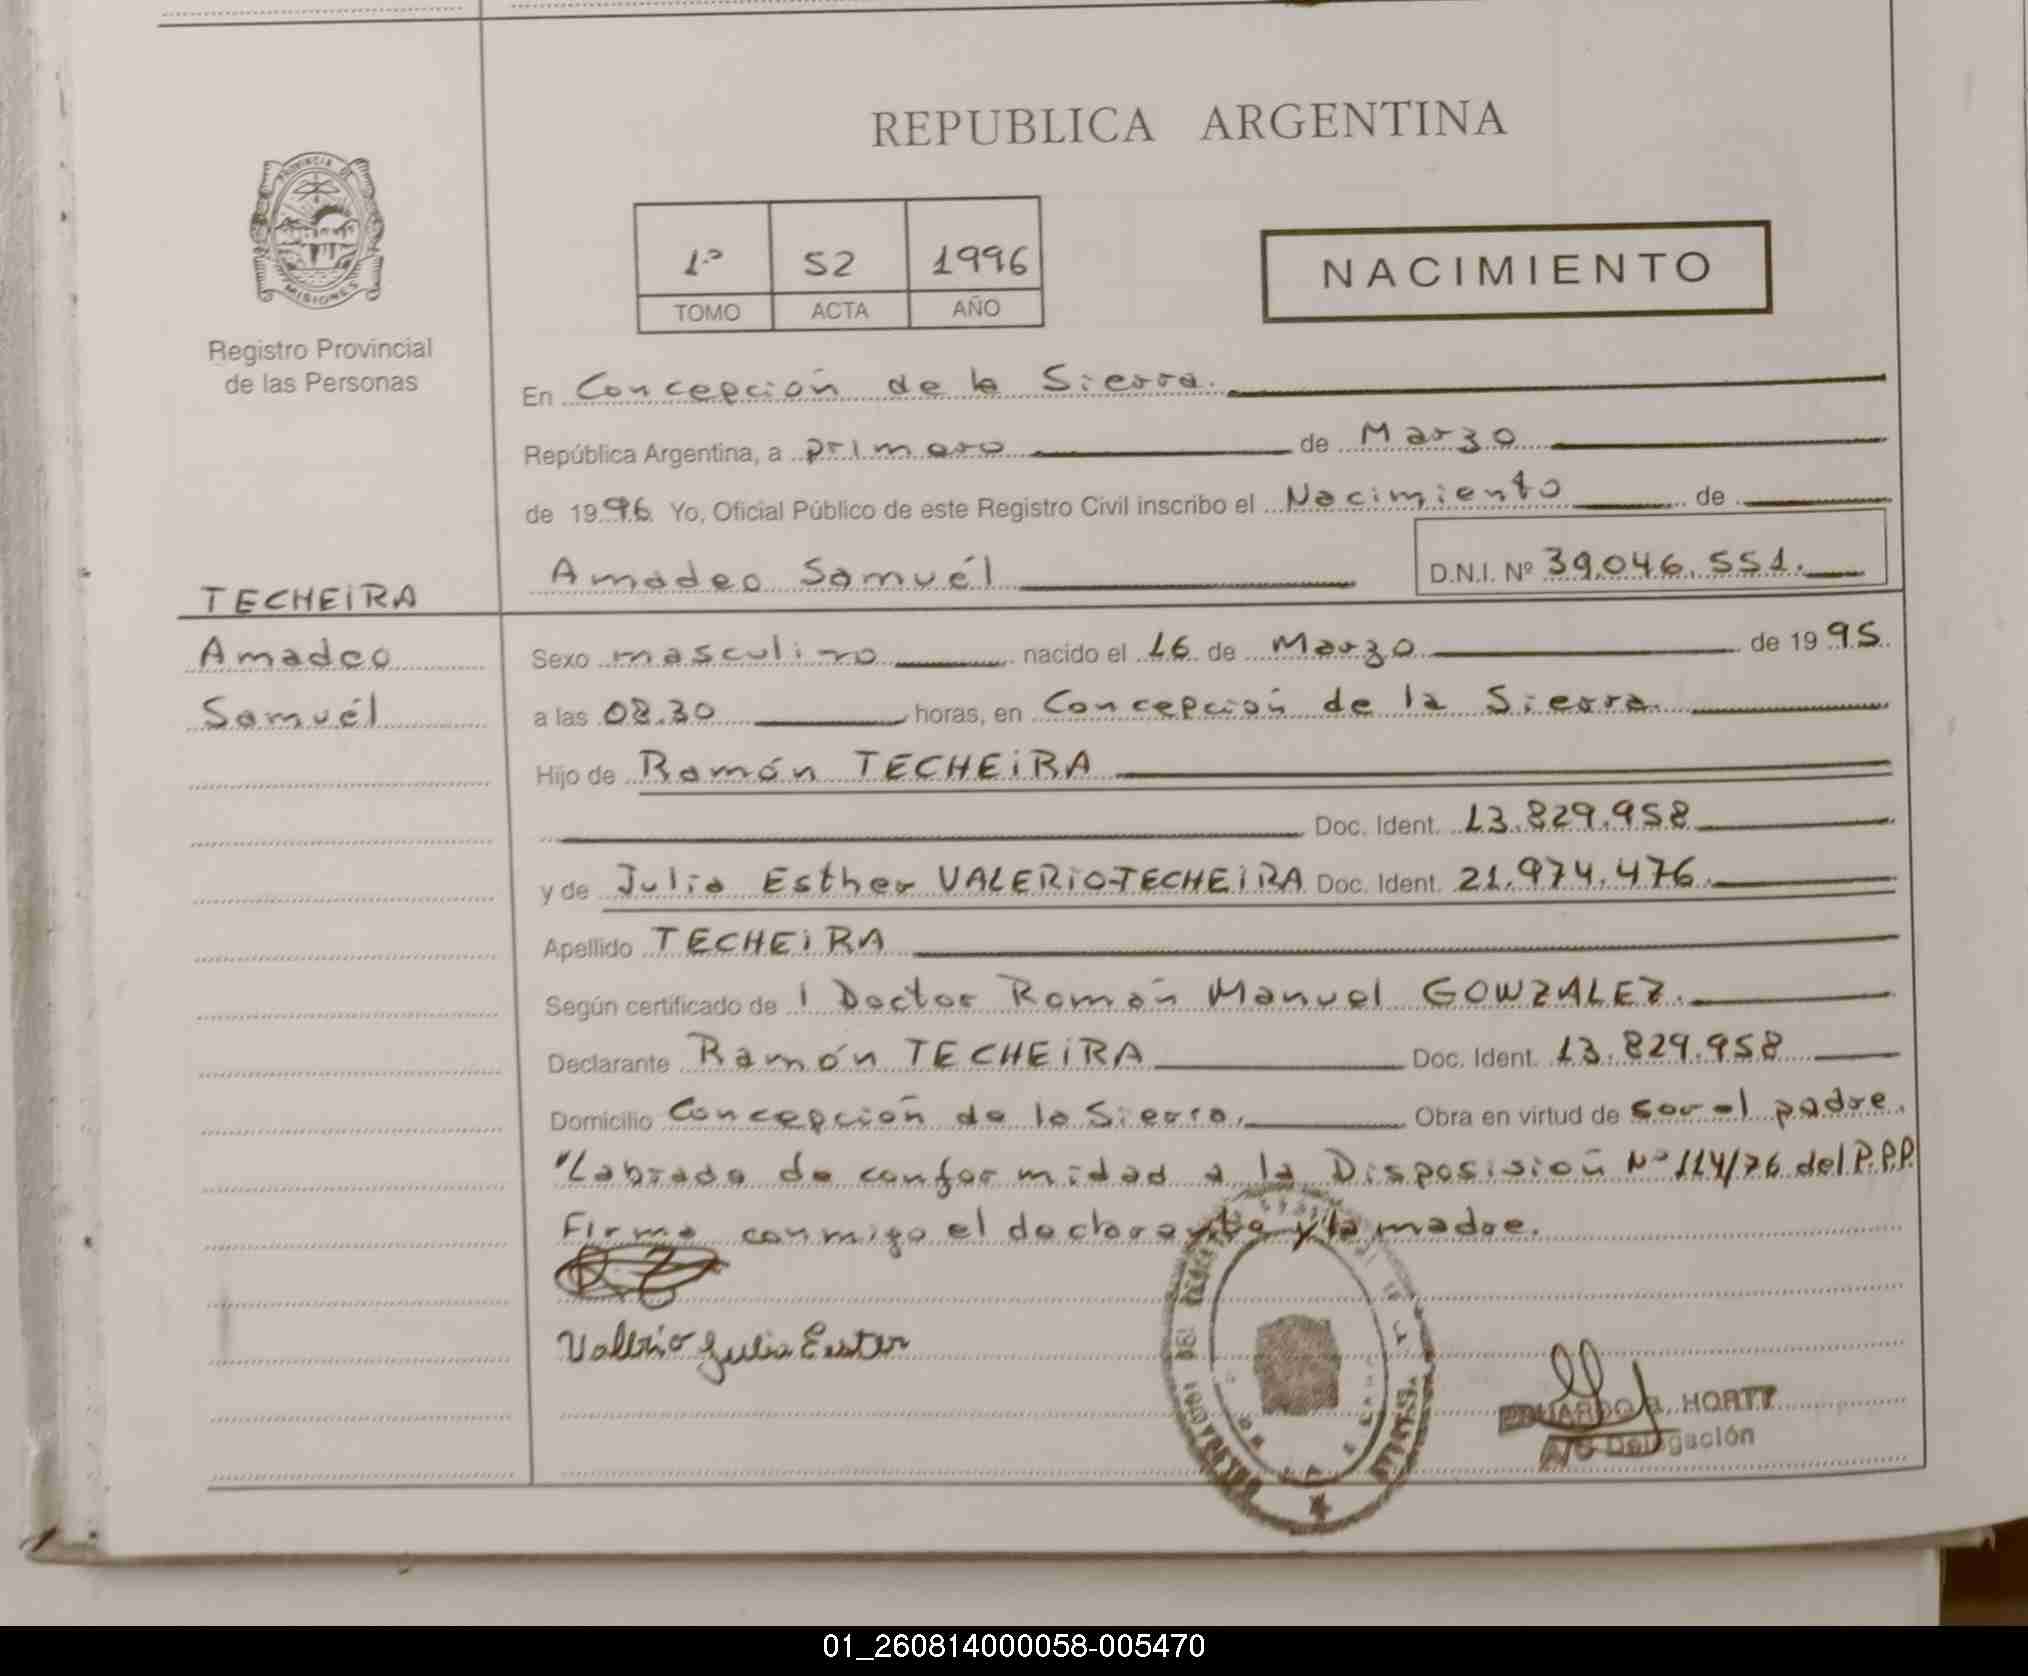 REPUBLICA ARGENTINA
PROVINCIA DE MISIONES
Registro Provincial
de las Personas
1º 52 1996
TOMO ACTA AÑO
NACIMIENTO
En Concepción de la Sierra.
República Argentina, a primero de Marzo
de 1996. Yo, Oficial Público de este Registro Civil inscribo el Nacimiento de
Amadeo Samuél D.N.I. Nº 39.046.551.
TECHEIRA
Amadeo
Samuél
Sexo masculino nacido el 16 de Marzo de 1995.
a las 08.30 horas, en Concepción de la Sierra.
Hijo de Ramón TECHEIRA
Doc. Ident. 13.829.958
y de Julia Esther VALERIO-TECHEIRA Doc. Ident. 21.974.476.
Apellido TECHEIRA
Según certificado de l Doctor Ramón Manuel GONZALEZ.
Declarante Ramón TECHEIRA Doc. Ident. 13.829.958
Domicilio Concepción de la Sierra. Obra en virtud de ser el padre.
"Labrada de conformidad a la Disposisión Nº 114/76 del P.P.P.
Firma conmigo el declarante y la madre.
Valerio Julia Ester
EDUARDO HORTT
A/C Delegación
01_260814000058-005470